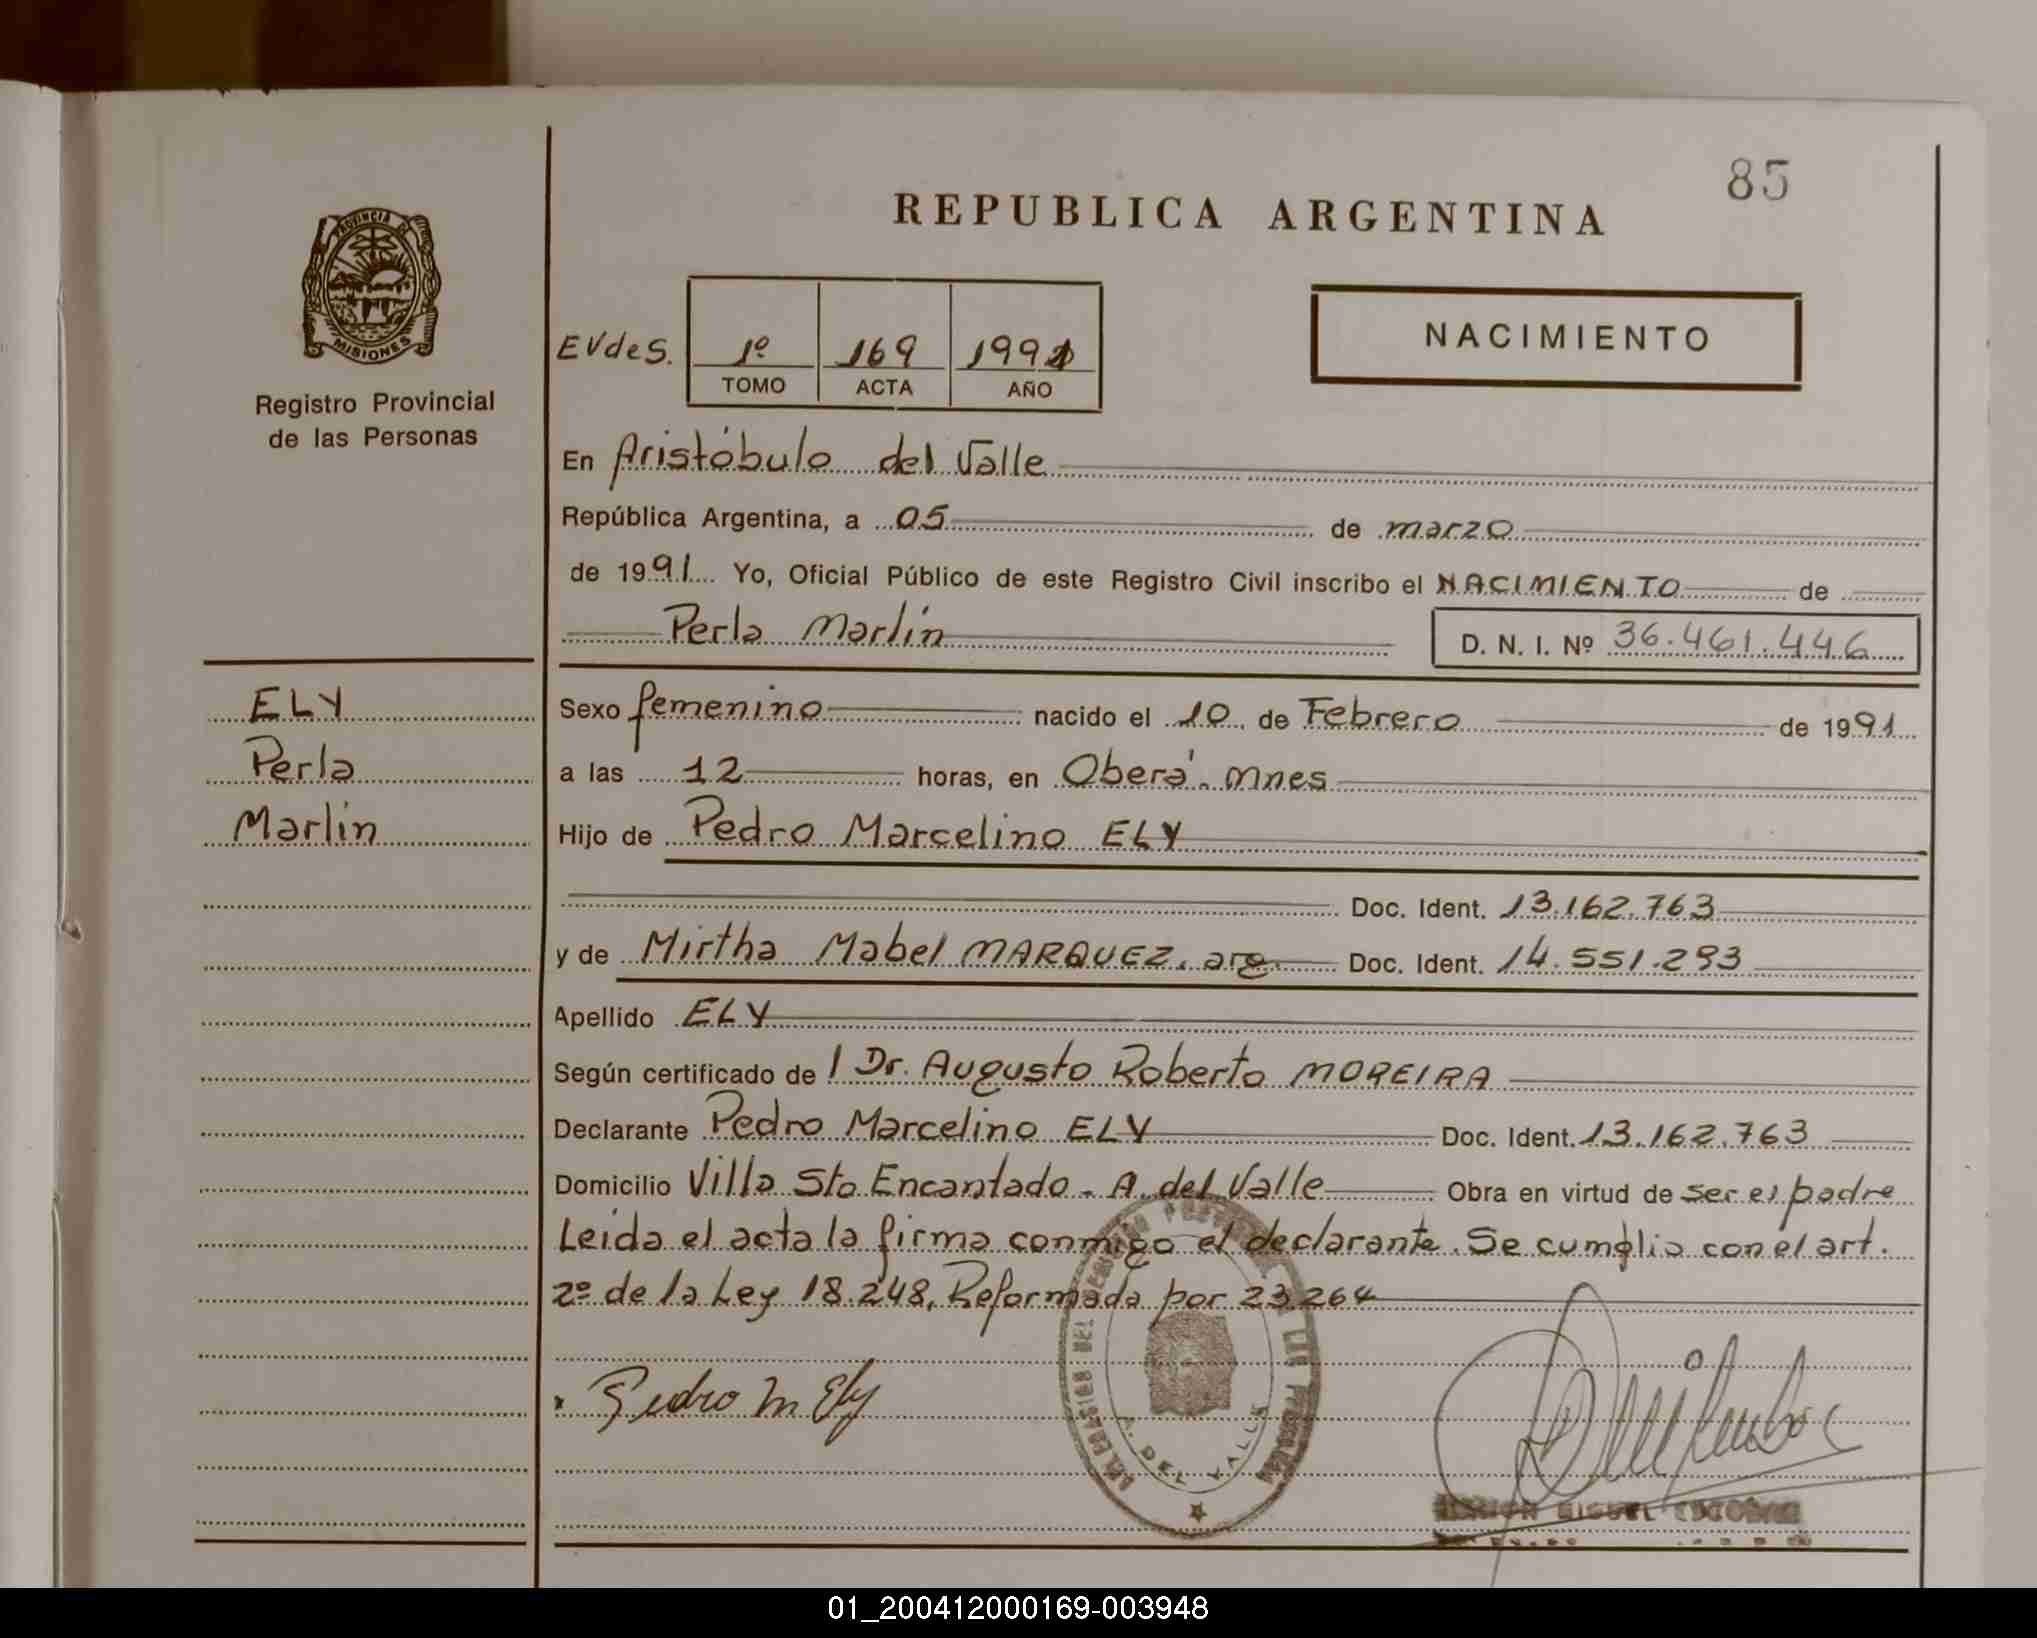 85
REPUBLICA ARGENTINA
PROVINCIA DE
MISIONES
Registro Provincial
de las Personas
NACIMIENTO
EVdeS. 1º 169 1991
TOMO ACTA AÑO
En Aristóbulo del Valle
República Argentina, a 05 de marzo
de 1991 Yo, Oficial Público de este Registro Civil inscribo el NACIMIENTO de
Perla Marlin D. N. I. Nº 36.461.446
ELY
Perla
Marlin
Sexo femenino nacido el 10 de Febrero de 1991
a las 12 horas, en Oberá. Mnes
Hijo de Pedro Marcelino ELY
Doc. Ident. 13.162.763
y de Mirtha Mabel MARQUEZ. arg. Doc. Ident. 14.551.293
Apellido ELY
Según certificado de l Dr. Augusto Roberto MOREIRA
Declarante Pedro Marcelino ELY Doc. Ident. 13.162.763
Domicilio Villa Sto Encantado. A. del Valle Obra en virtud de ser el padre
Leida el acta la firma conmigo el declarante. Se cumplio con el art.
2º de la Ley 18.248, Reformada por 23.264
Pedro M Ely
A. DEL VALLE
MIGUEL
01_200412000169-003948